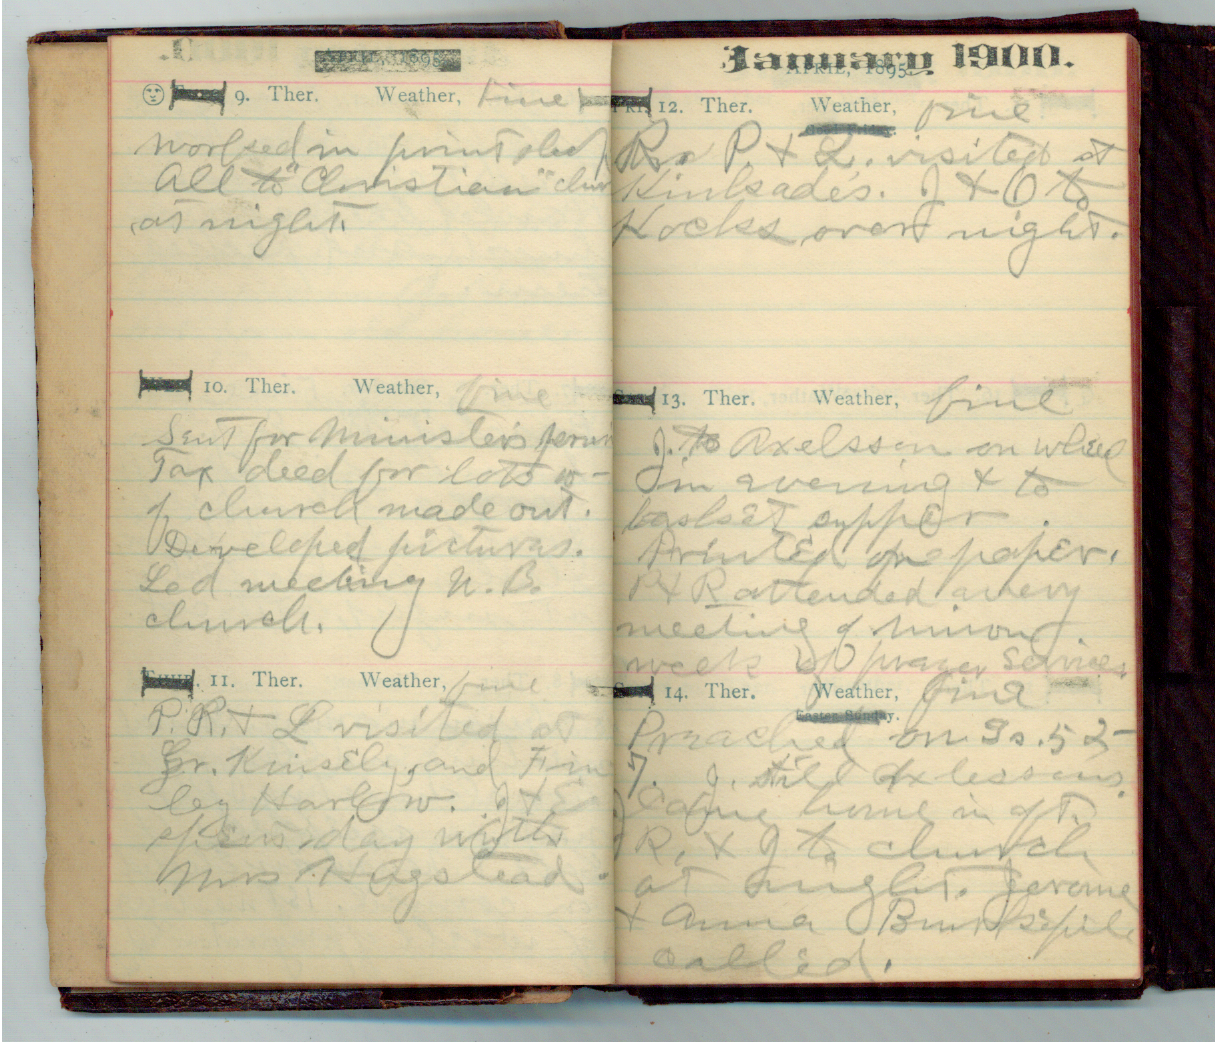 9. Ther. Weather, fine
Worked in print shop
All to "Christian" chur
at night.
10. Ther. Weather, fine
Sent for Minister's permit
Tax deed for lots w-
of church made out.
Developed pictures.
Led meeting U. B.
church.
Thur. 11. Ther. Weather, fine
P. R. & L visited at
Gr. Kinsely, and Fin
ley Harlow. J & E
spent day with
Mrs Hogstead.
January 1900.
April, 1895.
Fri. 12. Ther. Weather, fine
R P. & L. visited at
Kinksade's. J & O to
Kocks over night.
13. Ther. Weather, fine
J. to Axelsson on wheel
in evening & to
basket supper.
Printed on paper.
P & R attended every
meeting of union
week of prayer services
14. Ther. Weather, fine
Easter Sunday.
Preached on Is. 52-
7. J. still Axlessons.
Came home in aft.
R. & J to church
at night. Jerome
& Anna
called.